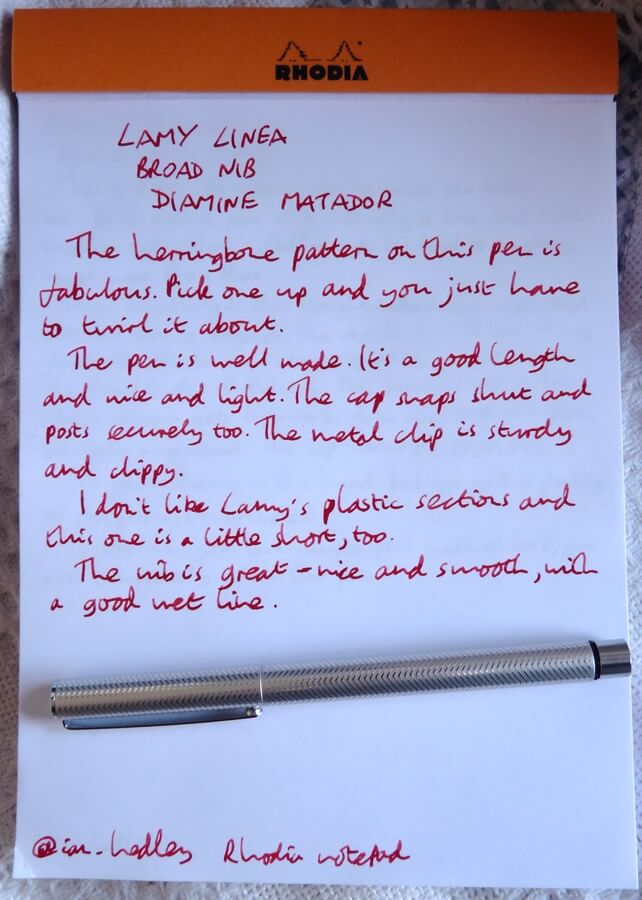 RHODIA
LAMY LINEA
BROAD NIB
DIAMINE MATADOR
The herringbone pattern on this pen is
fabulous. Pick one up and you just have
to twirl it about.
The pen is well made. It's a good length
and nice and light. The cap snaps shut and
posts securely too. The metal clip is sturdy
and clippy.
I don't like Lamy's plastic sections and
this one is a little short, too.
The nib is great – nice and smooth, with
a good wet line.
@ian_hedley Rhodia notepad